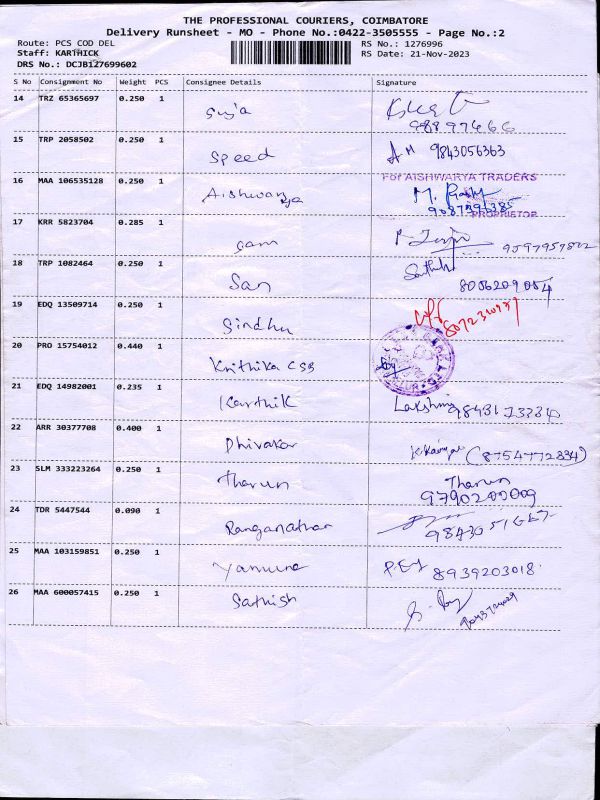 THE PROFESSIONAL COURIERS, COIMBATORE
Delivery Runsheet - MO - Phone No.:0422-3505555 - Page No.:2
Route: PCS COD DEL RS No.: 1276996
Staff: KARTHICK RS Date: 21-Nov-2023
DRS No.: DCJB127699602
S No Consignment No Weight PCS Consignee Details Signature
14 TRZ 65365697 0.250 1 Suja
15 TRP 2058502 0.250 1 Speed 9843056363
16 MAA 106535128 0.250 1 Aishwarya For AISHWARYA TRADERS
PROPRIETOR
17 KRR 5823704 0.285 1
18 TRP 1082464 0.250 1 San 8056209054
19 EDQ 13509714 0.250 1 Sindhu
20 PRO 15754012 0.440 1 Krithika CSB
21 EDQ 14982001 0.235 1 Karthik Lakshmi
22 ARR 30377708 0.400 1 Dhivakar (8754772334)
23 SLM 333223264 0.250 1 Tharun Tharun
9790200009
24 TDR 5447544 0.090 1 Ranganathan
25 MAA 103159851 0.250 1 Yamuna 8939203018
26 MAA 600057415 0.250 1 Sathish